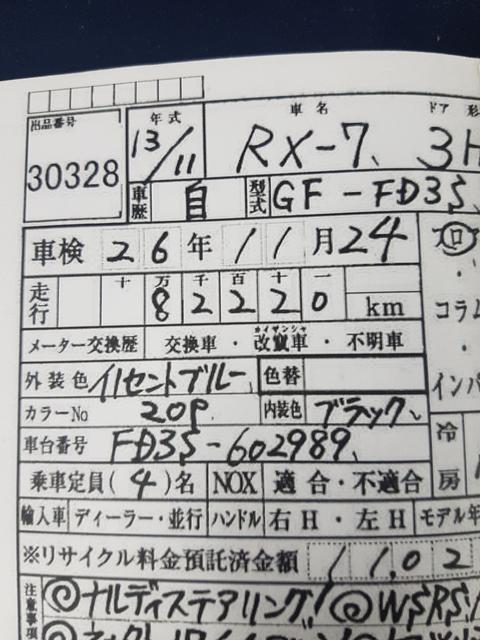 出品番号 年式 車名 ドア 形
30328 13/11 RX-7、 3H
車歴 自 型式 GF-FD3S、
車検 26年11月24
走行 十 万 千 百 十 一
8 2 2 2 0 km
カイザンシャ
メーター交換歴 交換車・改竄車・不明車
外装色 イノセントブルー、 色替
カラーNo 20P 内装色 ブラック、
車台番号 FD3S-602989、
乗車定員(4)名 NOX 適合・不適合
輸入車 ディーラー・並行 ハンドル 右H・左H モデル年
※リサイクル料金預託済金額 11,02
注意事項 ◎ナルディステアリング! ◎WSRS
コラム
インパ
冷房